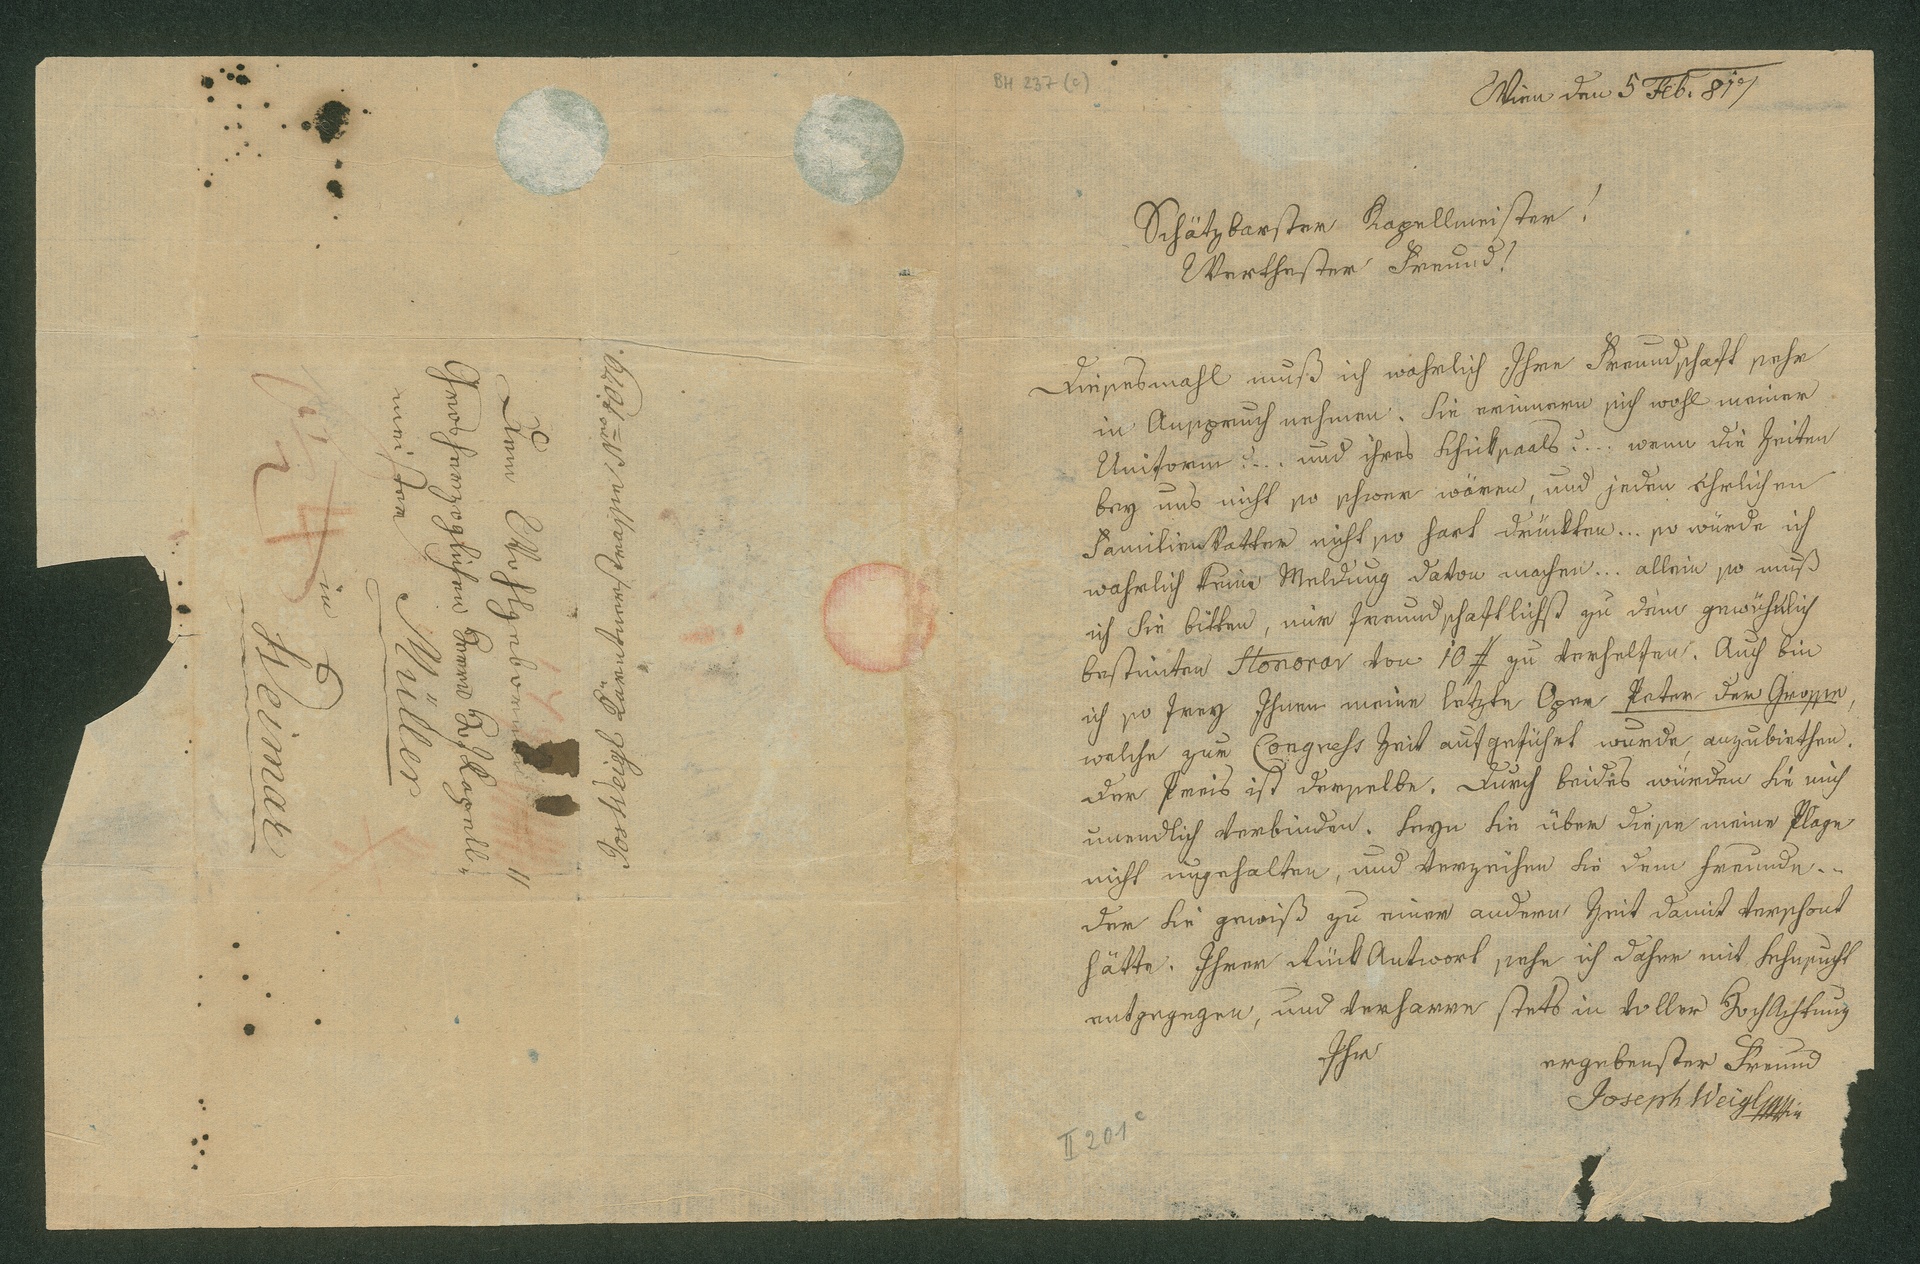 BH 237 (c)
Wien den 5 Feb. 817
Schätzbarster Kapellmeister!
Werthester Freund!
Diesesmahl muß ich wahrlich Ihre Freundschaft sehr
in Anspruch nehmen. Sie erinnern sich wohl meiner
Uniform?... und ihres Schiksaals?... wenn die Zeiten
bey uns nicht so schwer wären, und jeden ehrlichen
FamilienVatter nicht so hart drückten... so würde ich
wahrlich keine Meldung davon machen... allein so muß
ich Sie bitten, mir freundschaftlichst zu dem gewöhnlich
bestimten Honorar von 10 # zu verhelfen. Auch bin
ich so frey Ihnen meine letzte Oper Peter der Grosse,
welche zur Congress Zeit aufgeführt wurde, anzubiethen.
Der Preis ist derselbe. Durch beides würden Sie mich
unendlich verbinden. Seyn Sie über diese meine Plage
nicht ungehalten, und verzeihen Sie dem Freunde...
der Sie gewiß zu einer andern Zeit damit verschont
hätte. Ihrer RückAntwort sehe ich daher mit Sehnsucht
entgegen, und verharre stets in voller HochAchtung
Ihr
ergebenster Freund
Joseph Weigl
II 201 c
Jos Weigl Kärntnerstrasse Nro 1079.
Dem Wohlgebornen
Großherzoglichen Herrn Hofkapell-
meister
Müller
in
Weimar